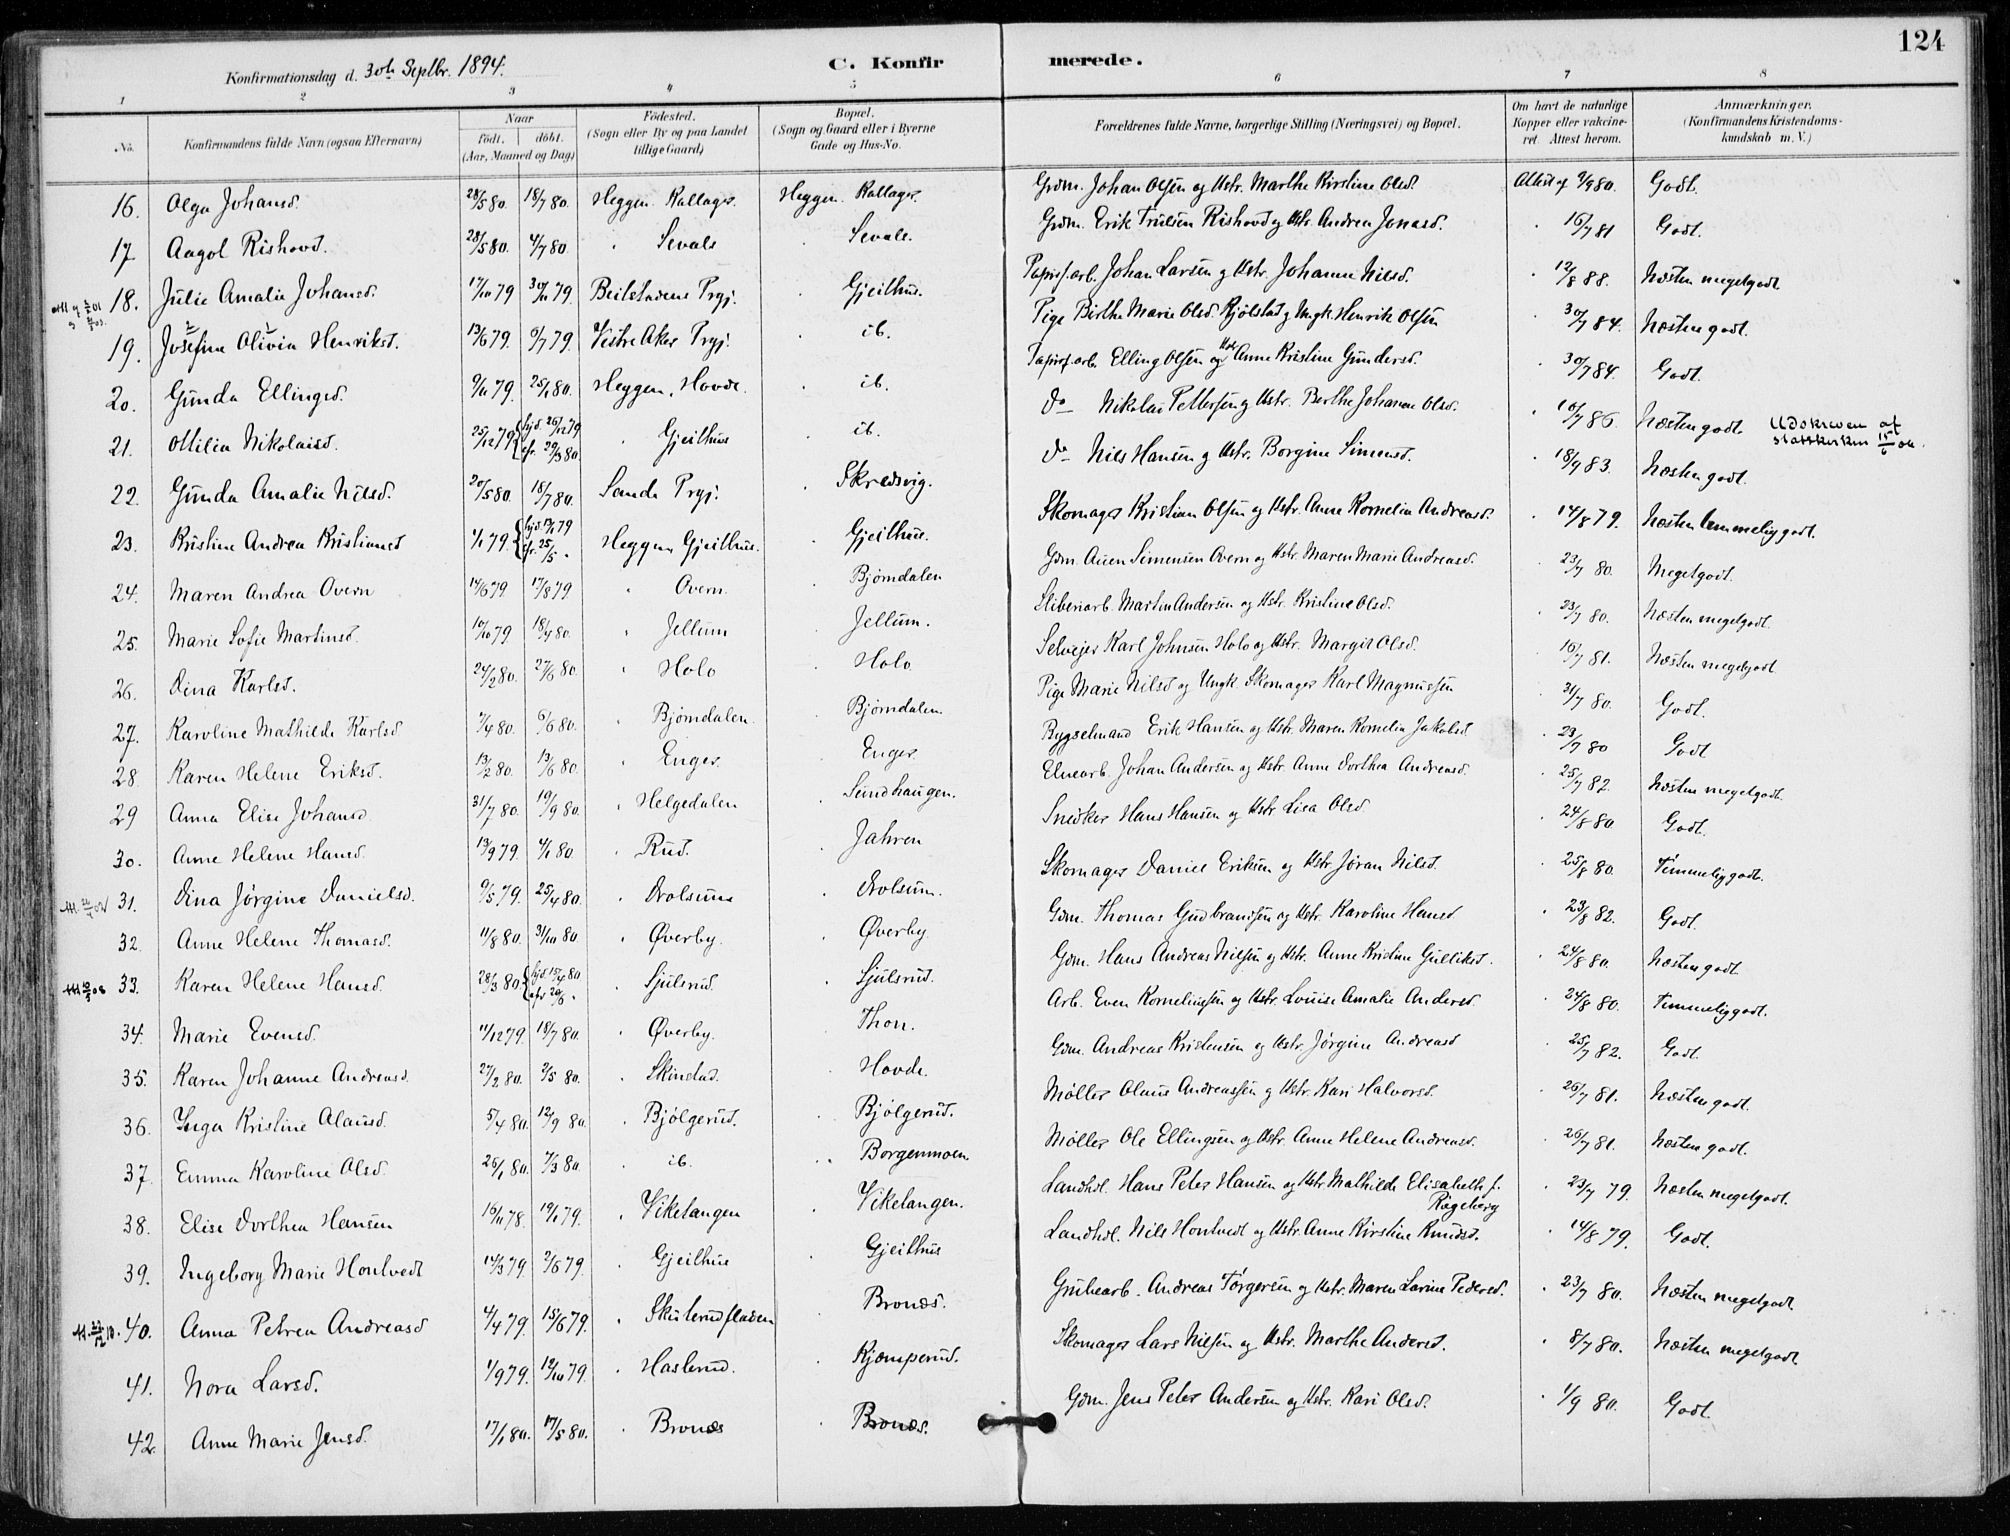 124
Konfirmationsdag d. 30te Septbr. 1894. C. Konfirmerede.
1 2 3 4 5 6 7 8
No. Konfirmandens fulde Navn (ogsaa Efternavn) Naar födt. döbt. (Aar, Maaned og Dag) Födested. (Sogn eller By og paa Landet tillige Gaard) Bopæl. (Sogn og Gaard eller i Byerne Gade og Hus-No. Forældrenes fulde Navne, borgerlige Stilling (Næringsvei) og Bopæl. Om havt de naturlige Kopper eller vakcineret. Attest herom. Anmærkninger. (Konfirmandens Kristendomskundskab m. V.)
16. Olga Johansd. 28/5 80. 18/7 80. Heggen Kallager. Heggen Kallager. Grdm. Johan Olsen og Hstr. Marthe Kirstine Olsd. Attest af 9/9 80. Godt.
17 Aagot Rishovd. 28/5 80. 4/7 80. " Sevale . Sevale. Grdm. Erik Trulsen Rishovd og Hstr. Andrea Jonasd. . 16/7 81 Godt.
18. Julie Amalie Johansd. 17/10 79 30/11 79. Beitstadens Prgj. . Gjeithus. Papirf.arb. Johan Larsen og Hstr. Johanne Nilsd. . 12/8 88. Næsten megetgodt
19. Josefine Olivia Henriksd. 13/6 79. 6/7 79. Vestre Aker Prgj. . ib. Pige Birthe Marie Olsd. Kjölstad og Ungk. Henrik Olsen 30/7 84. Næsten godt.
20. Gunda Ellingsd. 9/11 79. 25/1 80. Heggen, Hovde. . ib. Papirf.arb. Elling Olsen og Hstr Anne Kristine Gundersd. . 30/7 84. Godt.
21. Ottilia Nikolaisd. 25/12 79 {hjd. 26/12 79 efr. 29/3 80 " Gjeithus . ib. do Nikolai Pettersen og Hstr. Berthe Johanne Olsd. . 10/7 86. Næsten godt. Udskreven af statskirken 15/6 04.
22. Gunda Amalie Nilsd. 20/5 80. 18/7 80. Sande Prgj. . Skredsvig. do Nils Hansen og Hstr. Borgine Simensd. . 18/9 83. Næsten godt.
23. Kristine Andrea Kristiansd 1/1 79. {hjd. 12/1 79 efr. 25/5 " Heggen, Gjeithus. . Gjeithus. Skomager Kristian Olsen og Hstr. Anne Kornelia Andreasd. . 14/8 79. Næsten temmelig godt.
24. Maren Andrea Overn 14/6 79 17/8 79 " Overn . Bjørndalen Gdm. Auen Simensen Overn og Hstr. Maren Marie Andreasd. . 23/7 80. Megetgodt.
25. Marie Sofie Martinsd. 10/10 79 18/4 80. " Jellum . Jellum. Sliberiarb. Martin Andersen og Hstr. Kristine Olsd. . 23/7 80. Næsten megetgodt.
26. Dina Karlsd. 24/2 80. 27/6 80. " Holo . Holo Selveier Karl Johnsen Holo og Hstr. Margit Olsd. . 16/7 81. Næsten megetgodt
27. Karoline Mathilde Karlsd 7/4 80. 6/6 80. " Bjørndalen . Bjørndalen Pige Marie Nilsd og Ungk. Skomager Karl Magnussen . 31/7 80. Godt.
28 Karen Helene Eriksd. 13/2 80. 13/6 80. " Enger . Enger. Bygselmand Erik Hansen og Hstr. Maren Kornelia Jakobsd . 23/7 80 Godt
29 Anna Elise Johansd. 31/7 80. 19/9 80. " Helgedalen . Sundhaugen. Elvearb. Johan Andersen og Hstr. Anne Dorthea Andreasd. . 25/7 82. Næsten megetgodt.
30. Anne Helene Hansd. 13/9 79. 4/1 80. " Rud. . Jahren Snedker Hans Hansen og Hstr. Lisa Olsd . 24/8 80. Godt.
31. Dina Jørgine Danielsd. 6/5 79. 25/4 80. " Drolsum . Drolsum. Skomager Daniel Eriksen og Hstr Jøran Nilsd. . 25/8 80. Temmelig godt.
32. Anne Helene Thomasd. 11/8 80. 31/10 80 " Øverby. . Øverby. Gdm. Thomas Gudbrandsen og Hstr. Karoline Hansd . 23/8 82. Godt.
33. Karen Helene Hansd. 28/3 80 {hjd. 15/4 80 efr 20/6 " " Sjulsrud . Sjulsrud. Gdm. Hans Andreas Nilsen og Hstr. Anne Kristine Gulliksd. . 24/8 80. Næsten godt.
34. Marie Evensd. 11/12 79. 18/7 80. " Øverby. . Thon. Arb. Even Korneliussen og Hstr. Louise Amalie Andersd. . 24/8 80. Temmelig godt.
35. Karen Johanne Andreasd. 27/2 80. 2/5 80. " Skinstad. . Hovde. Gdm. Andreas Kristensen og Hstr. Jørgine Andreasd . 25/7 82. Godt.
36. Inga Kristine Olausd. 5/4 80. 12/9 80. " Bjølgerud. . Bjølgerud. Møller Olaus Andreassen og Hstr. Kari Halvorsd. . 26/7 81. Næsten godt.
37. Emma Karoline Olsd. 26/1 80. 7/3 80. " ib. . Borgenmoen Møller Ole Ellingsen og Hstr. Anne Helene Andreasd. . 26/7 81. Næsten godt.
38. Elise Dorthea Hansen 16/11 78. 19/1 79. " Vikelangen . Vikelangen. Landhdl. Hans Peter Hansen og Hstr Mathilde Elisabeth f. Rogeberg . 23/7 79. Næsten megetgodt.
39. Ingeborg Marie Hontvedt 14/3 79. 2/6 79. " Gjeithus . Gjeithus Landhdl. Nils Hontvedt og Hstr. Anne Kirstine Knudsd. . 14/8 79. Godt.
40. Anna Petrea Andreasd 4/4 79. 15/6 79. " Skuterudfladen . Bronæs. Grubearb. Andreas Torgersen og Hstr. Maren Lovine Pedersd. . 23/7 80. Næsten megetgodt.
41. Nora Larsd. 1/9 79. 12/10 79. " Haslerud. . Kjæmperud. Skomager Lars Nilsen og Hstr. Marthe Andersd. . 8/7 80. Næsten megetgodt.
42. Anne Marie Jensd. 17/1 80. 17/5 80. " Bronæs . Bronæs. Gdm. Jens Peter Andersen og Hstr. Kari Olsd. . 1/9 80. Godt.